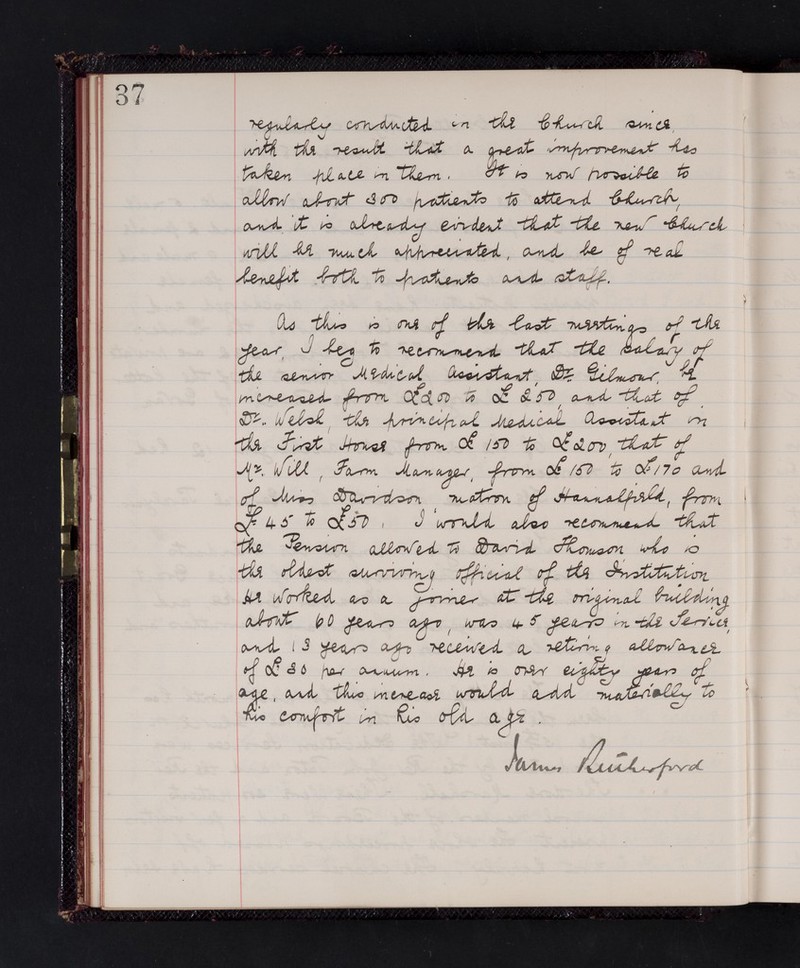 37
regularly conducted in the Church since,
with the result that a great improvement has
taken place in them. It is now possible to
allow about 300 patients to attend Church,
and it is already evident that the new Church
will be much appreciated, and be of real
benefit both to patients and staff.
As this is one of the last meetings of the
year, I beg to recommend that the salary of
the senior Medical Assistant, Dr. Gilmour, be
increased from £200 to £250, and that of
Dr. Welsh, the principal Medical Assistant in
the First House from £150 to £200, that of
Mr. Will, Farm Manager, from £150 to £170 and
of Miss Davidson, matron of Hannahfield, from
£45 to £50. I would also recommend that
the Pension allowed to David Thomson who is
the oldest surviving official of the Institution
He worked as a joiner at the original building
about 60 years ago, was 45 years in the Service,
and 13 years ago received a retiring allowance
of £30 per annum. He is over eighty years of
age, and this increase would add materially to
his comfort in his old age.
James Rutherford